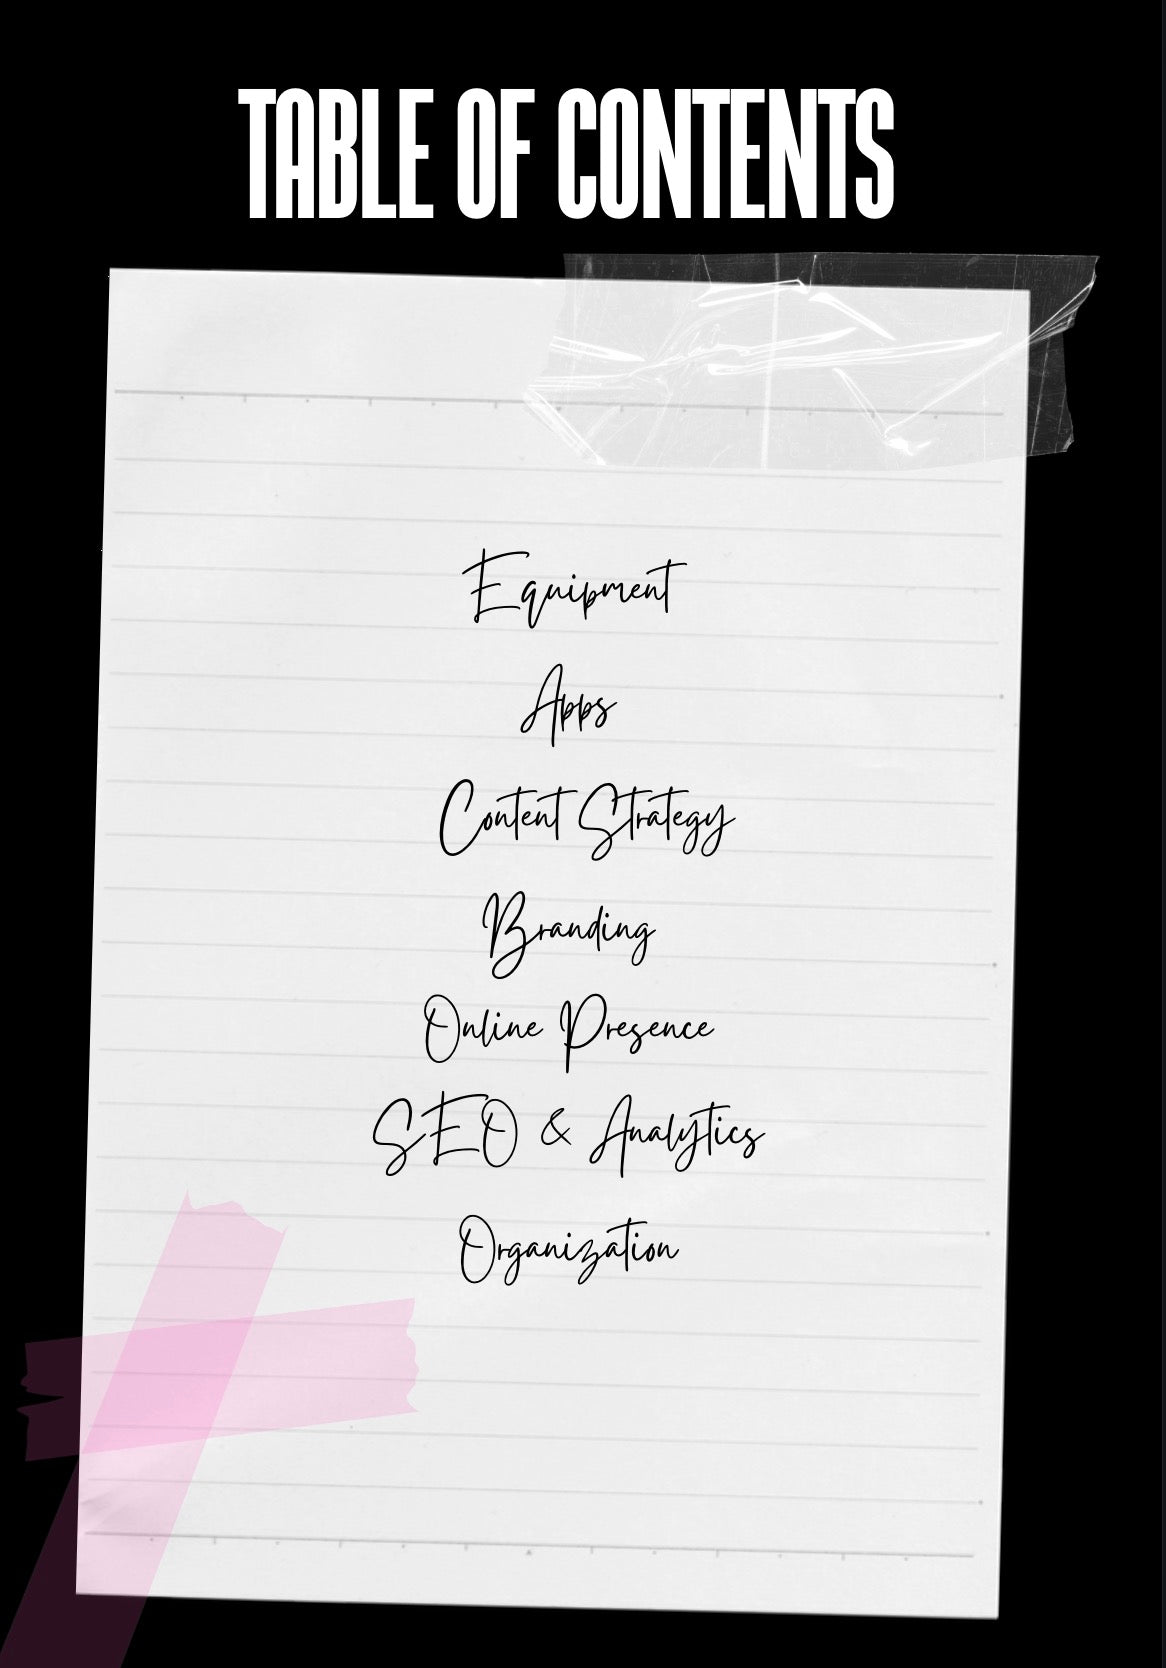 TABLE OF CONTENTS
Equipment
Apps
Content Strategy
Branding
Online Presence
SEO & Analytics
Organization